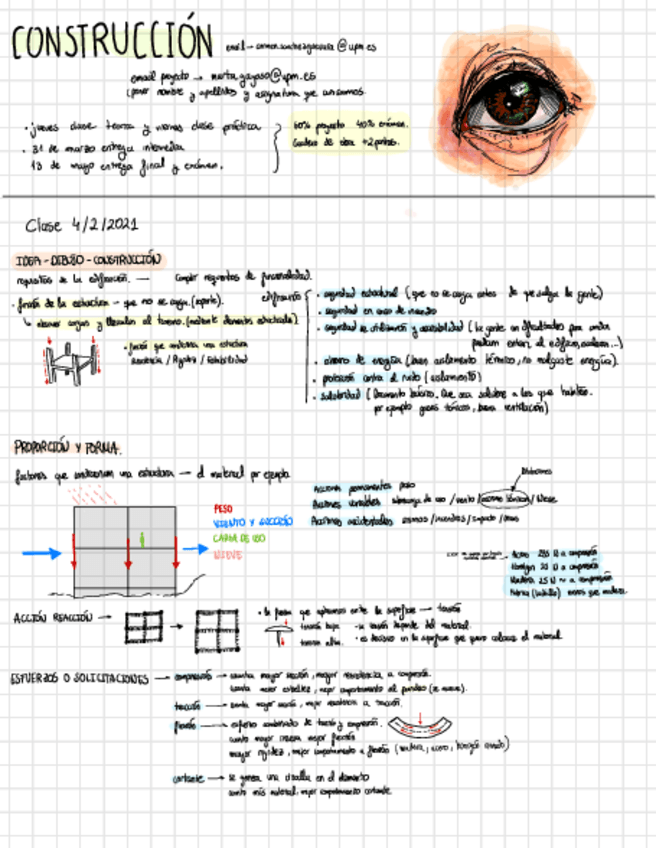 CONSTRUCCIÓN
email → @upm.es
email proyecto → marta.gayoso@upm.es
(poner nombre y apellidos y asignatura que cursamos
· jueves clase teoría y viernes clase práctica
· 31 de marzo entrega intermedia
13 de mayo entrega final y exámen.
60% proyecto 40% exámen.
Cuaderno de obra +2 puntos.
Clase 4/2/2021
IDEA-DIBUJO-CONSTRUCCIÓN
requisitos de la edificación. — Cumplir requisitos de funcionalidad.
· función de la estructura - que no se caiga. (soporte).
edificación
· función que condiciona una estructura
resistencia / Rigidez / estabilidad
· seguridad estructural (que no se caiga antes de que salga la gente)
· seguridad en caso de incendio
· seguridad de utilización y accesibilidad (la gente con dificultades para andar
puedan entrar al edificio, escaleras...)
· ahorro de energía (buen aislamiento térmico, no malgaste energía).
· protección contra el ruido (aislamiento)
· salubridad ( que sea salubre a los que habiten.
por ejemplo gases tóxicos, buena ventilación)
PROPORCIÓN Y FORMA.
factores que condicionan una estructura — el material por ejemplo
PESO
VIENTO Y SUCCIÓN
CARGA DE USO
NIEVE
Acciones permanentes peso
Acciones variables sobrecarga de uso / viento / acciones térmicas / nieve
Acciones accidentales sismos / incendios / impacto
Acero 235 N a compresión
Hormigón 25 N a compresión
Madera a compresión
Fábrica (ladrillo) menos que madera.
ACCIÓN REACCIÓN → →
· la fuerza que aplicamos entre la superficie — tensión
tensión baja - la tensión depende del material.
tensión alta. · es decisivo en la superficie que quiero colocar el material.
ESFUERZOS O SOLICITACIONES → compresión → cuanta mayor sección, mayor resistencia a compresión.
cuanta menor esbeltez, mejor comportamiento al pandeo (se mueve).
tracción → cuanta mayor sección, mejor resistencia a tracción.
flexión → esfuerzo combinado de tracción y compresión.
cuanto mayor inercia mejor flexión
mayor rigidez, mejor comportamiento a flexión (madera, acero, hormigón armado)
cortante → se genera una cizalla en el elemento
cuanto más material, mejor comportamiento cortante.